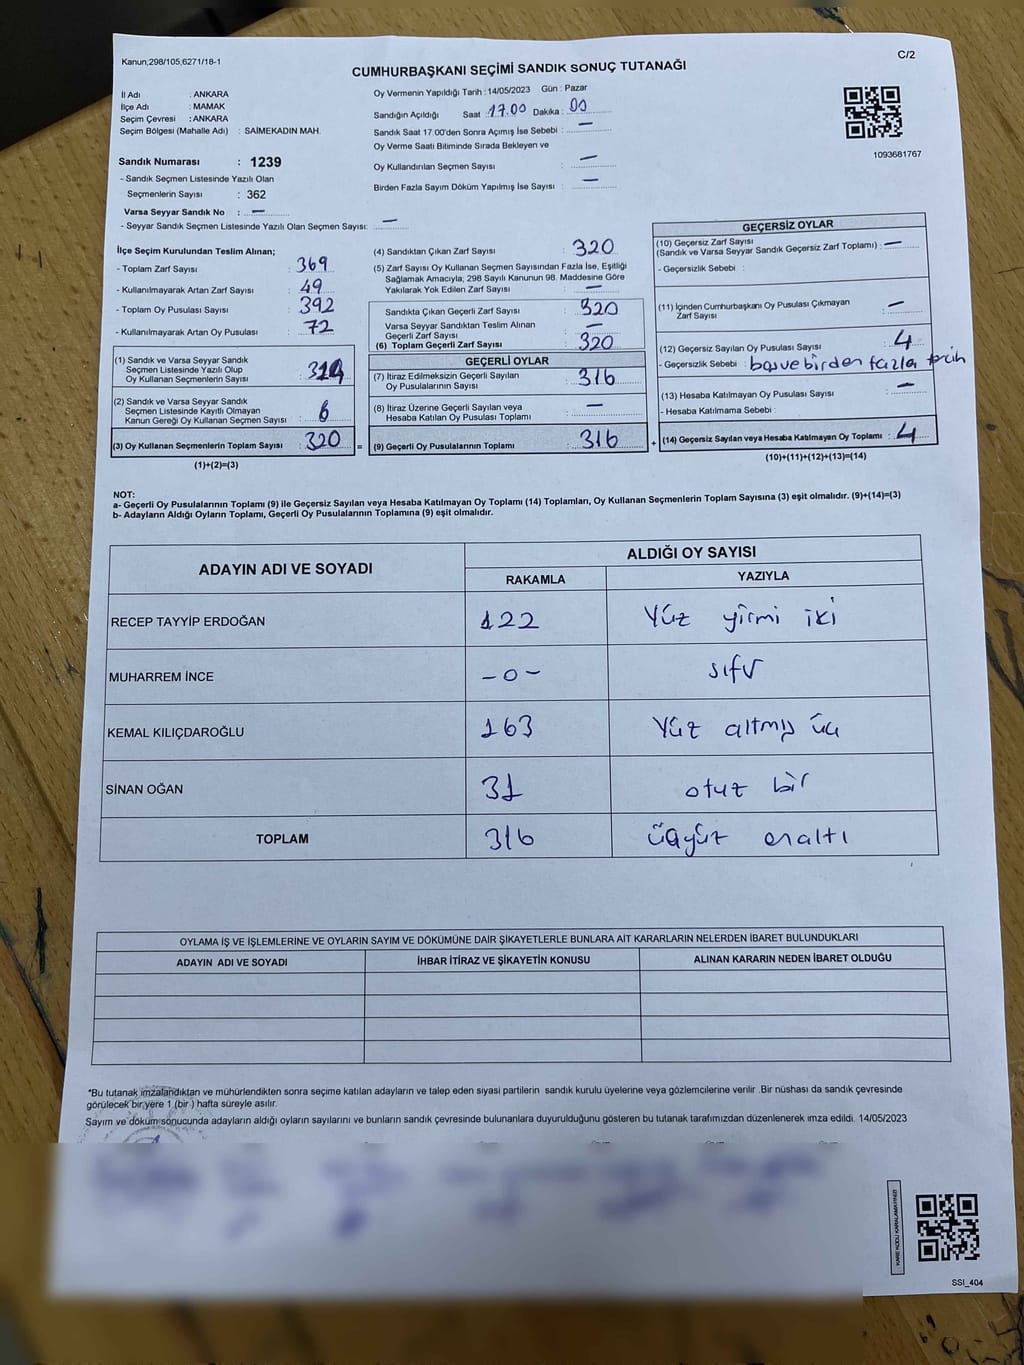 Kanun;298/105;6271/18-1
C/2
CUMHURBAŞKANI SEÇİMİ SANDIK SONUÇ TUTANAĞI
İl Adı : ANKARA
İlçe Adı : MAMAK
Seçim Çevresi : ANKARA
Seçim Bölgesi (Mahalle Adı) : SAİMEKADIN MAH.
Oy Vermenin Yapıldığı Tarih : 14/05/2023 Gün : Pazar
Sandığın Açıldığı Saat : 17.00 Dakika : 00
Sandık Saat 17:00'den Sonra Açımış İse Sebebi : —
Oy Verme Saati Bitiminde Sırada Bekleyen ve
Oy Kullandırılan Seçmen Sayısı : —
Birden Fazla Sayım Döküm Yapılmış İse Sayısı : —
1093681767
Sandık Numarası : 1239
- Sandık Seçmen Listesinde Yazılı Olan
Seçmenlerin Sayısı : 362
Varsa Seyyar Sandık No : —
- Seyyar Sandık Seçmen Listesinde Yazılı Olan Seçmen Sayısı: —
İlçe Seçim Kurulundan Teslim Alınan;
- Toplam Zarf Sayısı : 369
- Kullanılmayarak Artan Zarf Sayısı : 49
- Toplam Oy Pusulası Sayısı : 392
- Kullanılmayarak Artan Oy Pusulası : 72
(1) Sandık ve Varsa Seyyar Sandık
Seçmen Listesinde Yazılı Olup
Oy Kullanan Seçmenlerin Sayısı : 314
(2) Sandık ve Varsa Seyyar Sandık
Seçmen Listesinde Kayıtlı Olmayan
Kanun Gereği Oy Kullanan Seçmen Sayısı : 6
(3) Oy Kullanan Seçmenlerin Toplam Sayısı : 320
(1)+(2)=(3)
(4) Sandıktan Çıkan Zarf Sayısı : 320
(5) Zarf Sayısı Oy Kullanan Seçmen Sayısından Fazla İse, Eşitliği
Sağlamak Amacıyla; 298 Sayılı Kanunun 98. Maddesine Göre
Yakılarak Yok Edilen Zarf Sayısı : —
Sandıkta Çıkan Geçerli Zarf Sayısı : 320
Varsa Seyyar Sandıktan Teslim Alınan
Geçerli Zarf Sayısı : —
(6) Toplam Geçerli Zarf Sayısı : 320
GEÇERLİ OYLAR
(7) İtiraz Edilmeksizin Geçerli Sayılan
Oy Pusulalarının Sayısı : 316
(8) İtiraz Üzerine Geçerli Sayılan veya
Hesaba Katılan Oy Pusulası Toplamı : —
= (9) Geçerli Oy Pusulalarının Toplamı : 316 +
GEÇERSİZ OYLAR
(10) Geçersiz Zarf Sayısı
(Sandık ve Varsa Seyyar Sandık Geçersiz Zarf Toplamı) : —
- Geçersizlik Sebebi :
(11) İçinden Cumhurbaşkanı Oy Pusulası Çıkmayan
Zarf Sayısı : —
(12) Geçersiz Sayılan Oy Pusulası Sayısı : 4
- Geçersizlik Sebebi : boş ve birden fazla tercih
(13) Hesaba Katılmayan Oy Pusulası Sayısı : —
- Hesaba Katılmama Sebebi :
(14) Geçersiz Sayılan veya Hesaba Katılmayan Oy Toplamı : 4
(10)+(11)+(12)+(13)=(14)
NOT:
a- Geçerli Oy Pusulalarının Toplamı (9) ile Geçersiz Sayılan veya Hesaba Katılmayan Oy Toplamı (14) Toplamları, Oy Kullanan Seçmenlerin Toplam Sayısına (3) eşit olmalıdır. (9)+(14)=(3)
b- Adayların Aldığı Oyların Toplamı, Geçerli Oy Pusulalarının Toplamına (9) eşit olmalıdır.
ADAYIN ADI VE SOYADI
ALDIĞI OY SAYISI
RAKAMLA YAZIYLA
RECEP TAYYİP ERDOĞAN 122 Yüz yirmi iki
MUHARREM İNCE -0- sıfır
KEMAL KILIÇDAROĞLU 163 Yüz altmış üç
SİNAN OĞAN 31 otuz bir
TOPLAM 316 üçyüz onaltı
OYLAMA İŞ VE İŞLEMLERİNE VE OYLARIN SAYIM VE DÖKÜMÜNE DAİR ŞİKAYETLERLE BUNLARA AİT KARARLARIN NELERDEN İBARET BULUNDUKLARI
ADAYIN ADI VE SOYADI İHBAR İTİRAZ VE ŞİKAYETİN KONUSU ALINAN KARARIN NEDEN İBARET OLDUĞU
*Bu tutanak imzalandıktan ve mühürlendikten sonra seçime katılan adayların ve talep eden siyasi partilerin sandık kurulu üyelerine veya gözlemcilerine verilir .Bir nüshası da sandık çevresinde
görülecek bir yere 1 (bir ) hafta süreyle asılır.
Sayım ve döküm sonucunda adayların aldığı oyların sayılarını ve bunların sandık çevresinde bulunanlara duyurulduğunu gösteren bu tutanak tarafımızdan düzenlenerek imza edildi. 14/05/2023
KARE KODU KARALAMAYINIZ!
SSI_404